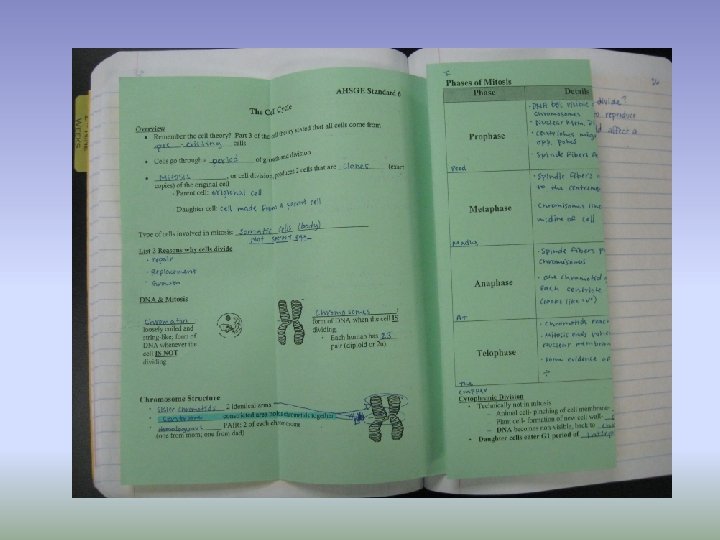 AHSGE Standard 6
The Cell Cycle
Overview
• Remember the cell theory? Part 3 of the cell theory stated that all cells come from
pre-existing cells
• Cells go through a period of growth and division
• Mitosis, or cell division, produces 2 cells that are clones (exact
copies) of the original cell
- Parent cell: original cell
- Daughter cell: cell made from a parent cell
Type of cells involved in mitosis: somatic cells (body)
not sperm/egg
List 3 Reasons why cells divide
• repair
• Replacement
• Growth
DNA & Mitosis
Chromatin
loosely coiled and
string-like; form of
DNA whenever the
cell IS NOT
dividing
Chromosomes
form of DNA when the cell IS
dividing
• Each human has 23
pair (diploid or 2n)
Chromosome Structure
• sister chromatids 2 identical arms
• centromere constricted area holds chromatids together
• Homologous PAIR: 2 of each chromosome
(one from mom; one from dad)
Phases of Mitosis
Phase Details
Prophase
• DNA bcs visible
chromosomes
• nuclear mem.
• centrioles
opp. poles
• Spindle fibers
Metaphase
• Spindle fibers
to the centromere
• Chromosomes line
middle of cell
Anaphase
• Spindle fibers
chromosomes
• one chromatid
each centriole
(looks like "v")
AT
Telophase
• Chromatids reach
• Mitosis ends
nuclear membrane
• some evidence of
The
Cytoplasmic Division
• Technically not in mitosis
– Animal cell- pinching of cell membrane
– Plant cell- formation of new cell wall-
– DNA becomes non visible, back to
• Daughter cells enter G1 period of
divide?
reproduce
affect a
WEEKS